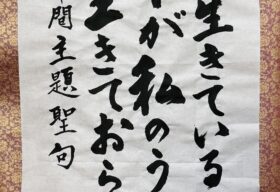 生きている
が私のう
生きておら
間主題聖句